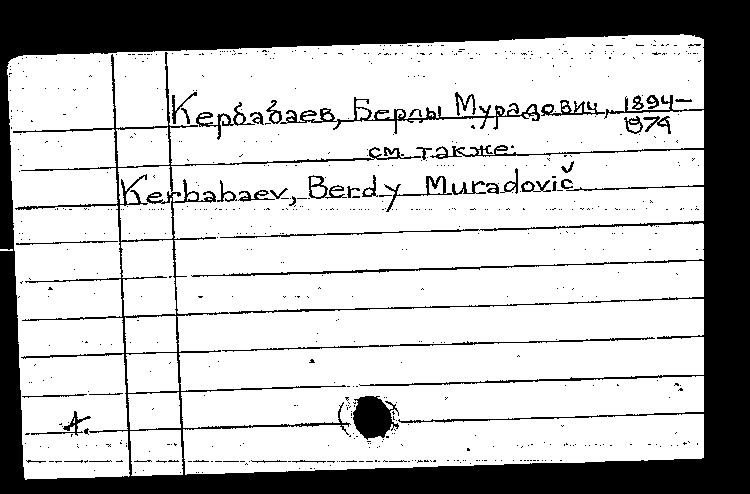 Кербабаев, Берды Мурадович, 1894–
1974
см. также:
Kerbabaev, Berdy Muradovič
1.